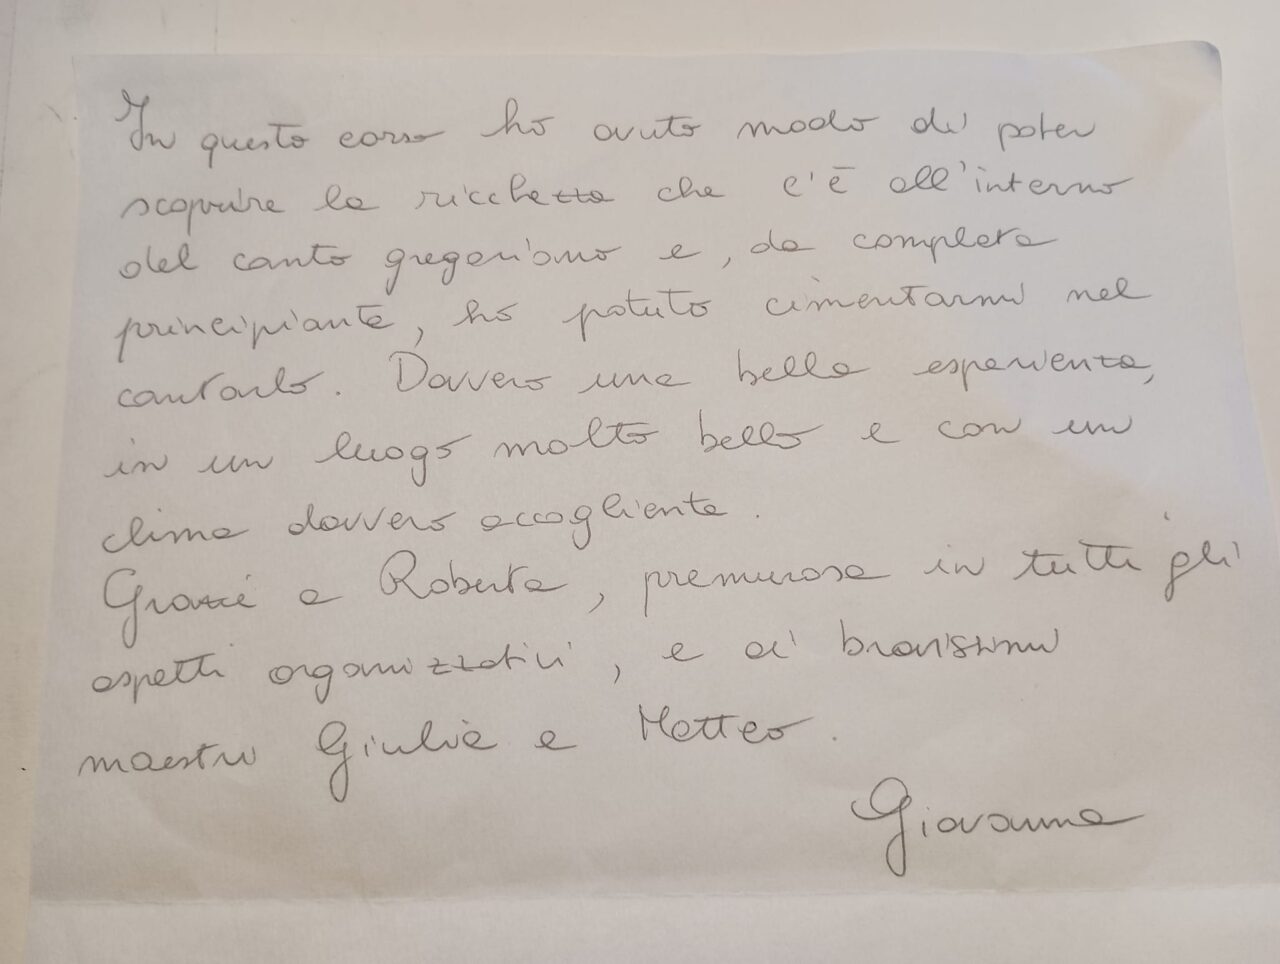 In questo corso ho avuto modo di poter
scoprire la ricchezza che c'è all'interno
del canto gregoriano e, da completa
principiante, ho potuto cimentarmi nel
cantarlo. Davvero una bella esperienza,
in un luogo molto bello e con un
clima davvero accogliente.
Grazie a Roberta, premurosa in tutti gli
aspetti organizzativi, e ai bravissimi
maestri Giulia e Matteo.
Giovanna